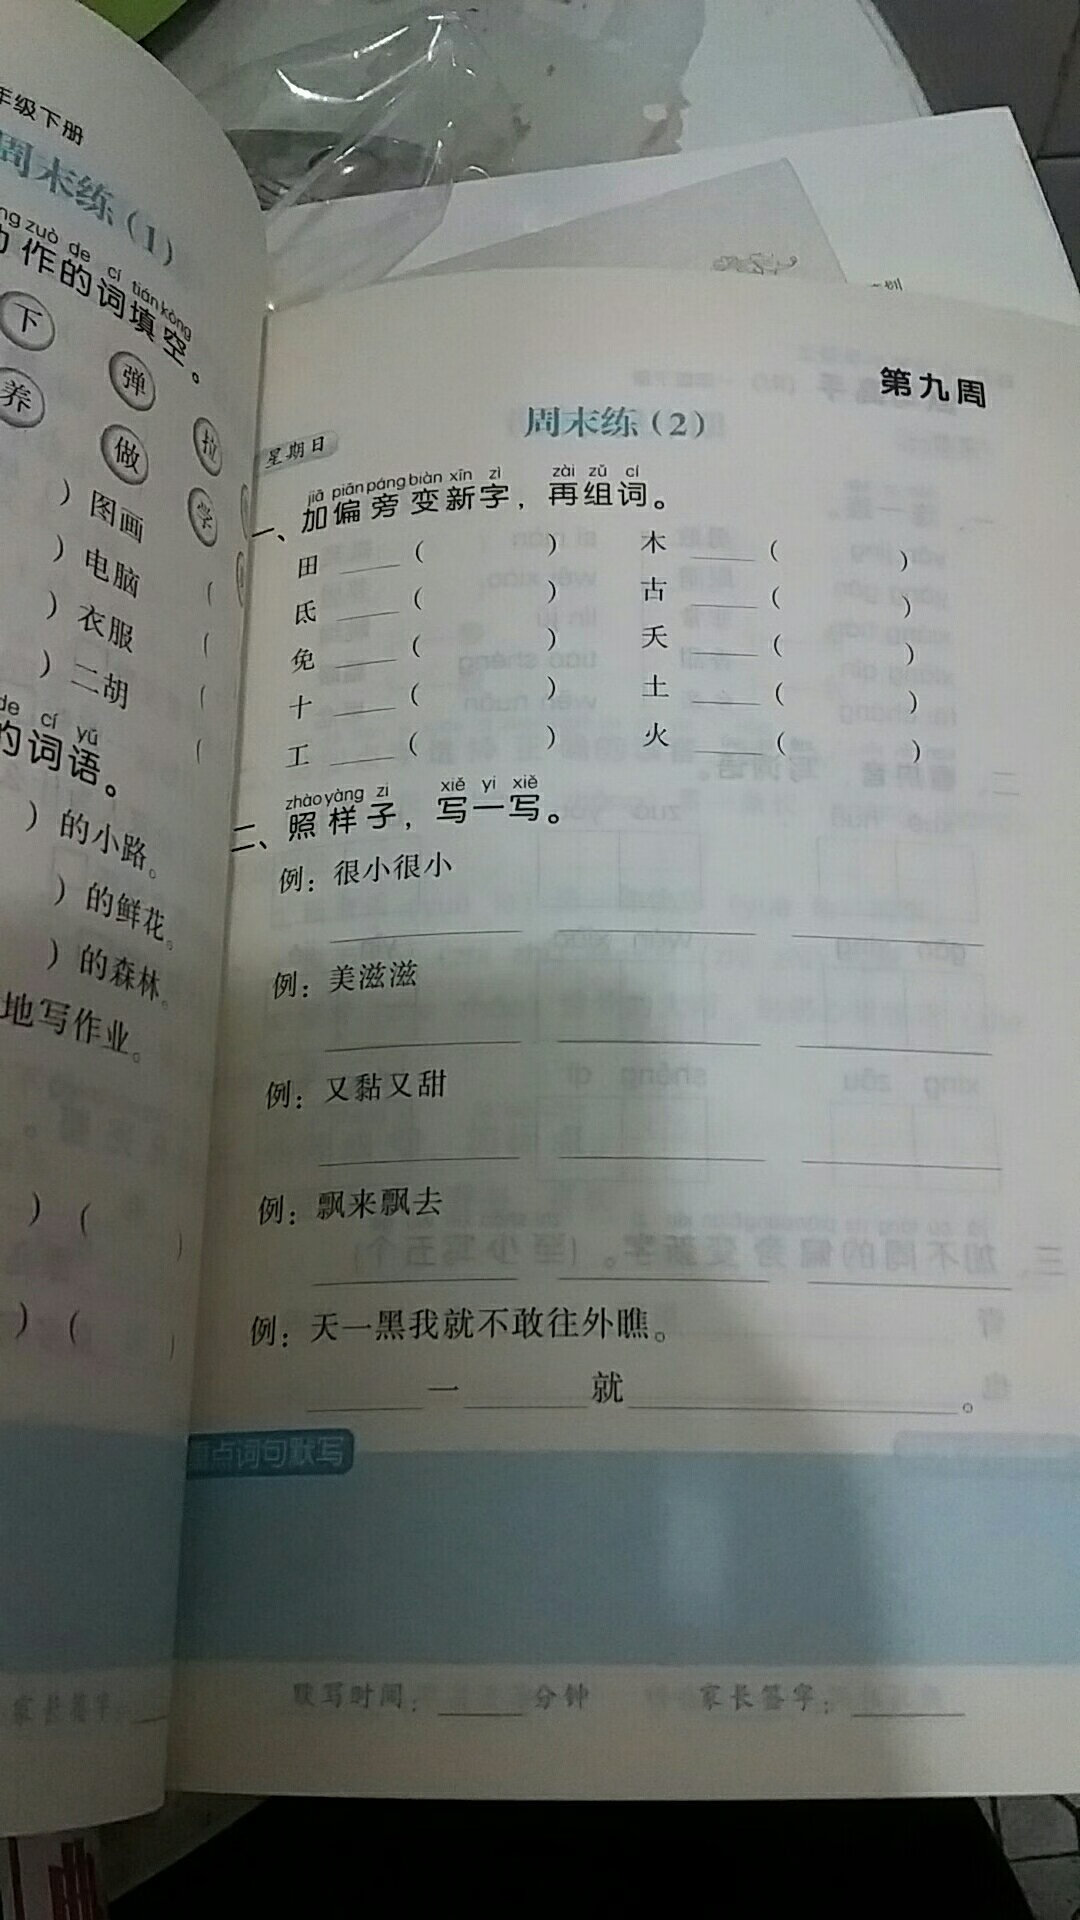 年级下册
周末练（1）
zuò de cí tián kòng
作的词填空。
下 弹 拉
养 做 学
）图画
）电脑 （
）衣服 （
）二胡 （
de cí yǔ
的词语。
）的小路。
）的鲜花。
）的森林。
地写作业。
）（ ）
）（ ）
家长签字：
第九周
周末练（2）
星期日
jiā piān páng biàn xīn zì zài zǔ cí
一、加偏旁变新字，再组词。
田____（ ） 木____（ ）
氐____（ ） 古____（ ）
免____（ ） 夭____（ ）
十____（ ） 土____（ ）
工____（ ） 火____（ ）
zhào yàng zi xiě yi xiě
二、照样子，写一写。
例：很小很小
例：美滋滋
例：又黏又甜
例：飘来飘去
例：天一黑我就不敢往外瞧。
____一____就____。
重点词句默写
默写时间：____分钟 家长签字：____